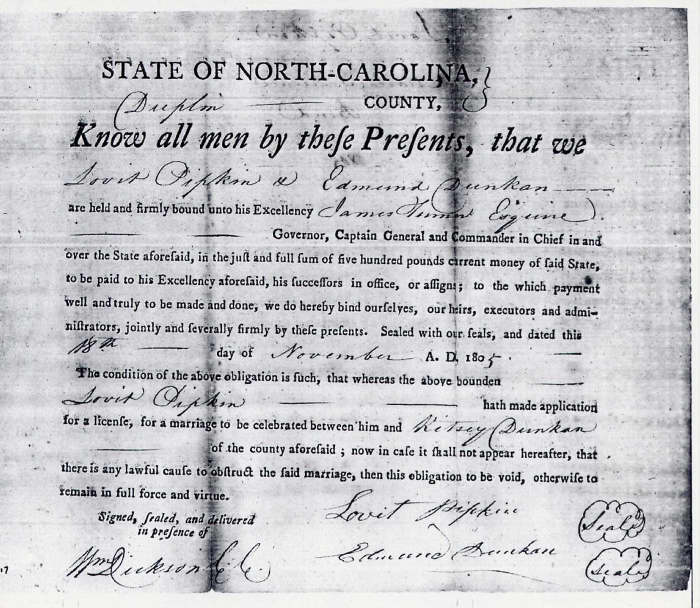 STATE OF NORTH-CAROLINA,
Duplin COUNTY,
Know all men by theſe Preſents, that we
Lovit Pipkin & Edmund Dunkan
are held and firmly bound unto his Excellency James Turner Esquire
Governor, Captain General and Commander in Chief in and
over the State aforeſaid, in the juſt and full ſum of five hundred pounds current money of ſaid State,
to be paid to his Excellency aforeſaid, his ſucceſſors in office, or aſſigns; to the which payment
well and truly to be made and done, we do hereby bind ourſelves, our heirs, executors and admi-
niſtrators, jointly and ſeverally firmly by theſe preſents. Sealed with our ſeals, and dated this
18th day of November A. D. 1805.
The condition of the above obligation is ſuch, that whereas the above bounden
Lovit Pipkin hath made application
for a licenſe, for a marriage to be celebrated between him and Kitsey Dunkan
of the county aforeſaid; now in caſe it ſhall not appear hereafter, that
there is any lawful cauſe to obſtruct the ſaid marriage, then this obligation to be void, otherwiſe to
remain in full force and virtue.
Signed, ſealed, and delivered
in preſence of
Lovit Pipkin Seal
Edmund Dunkan Seal
Wm Dickson C.C.